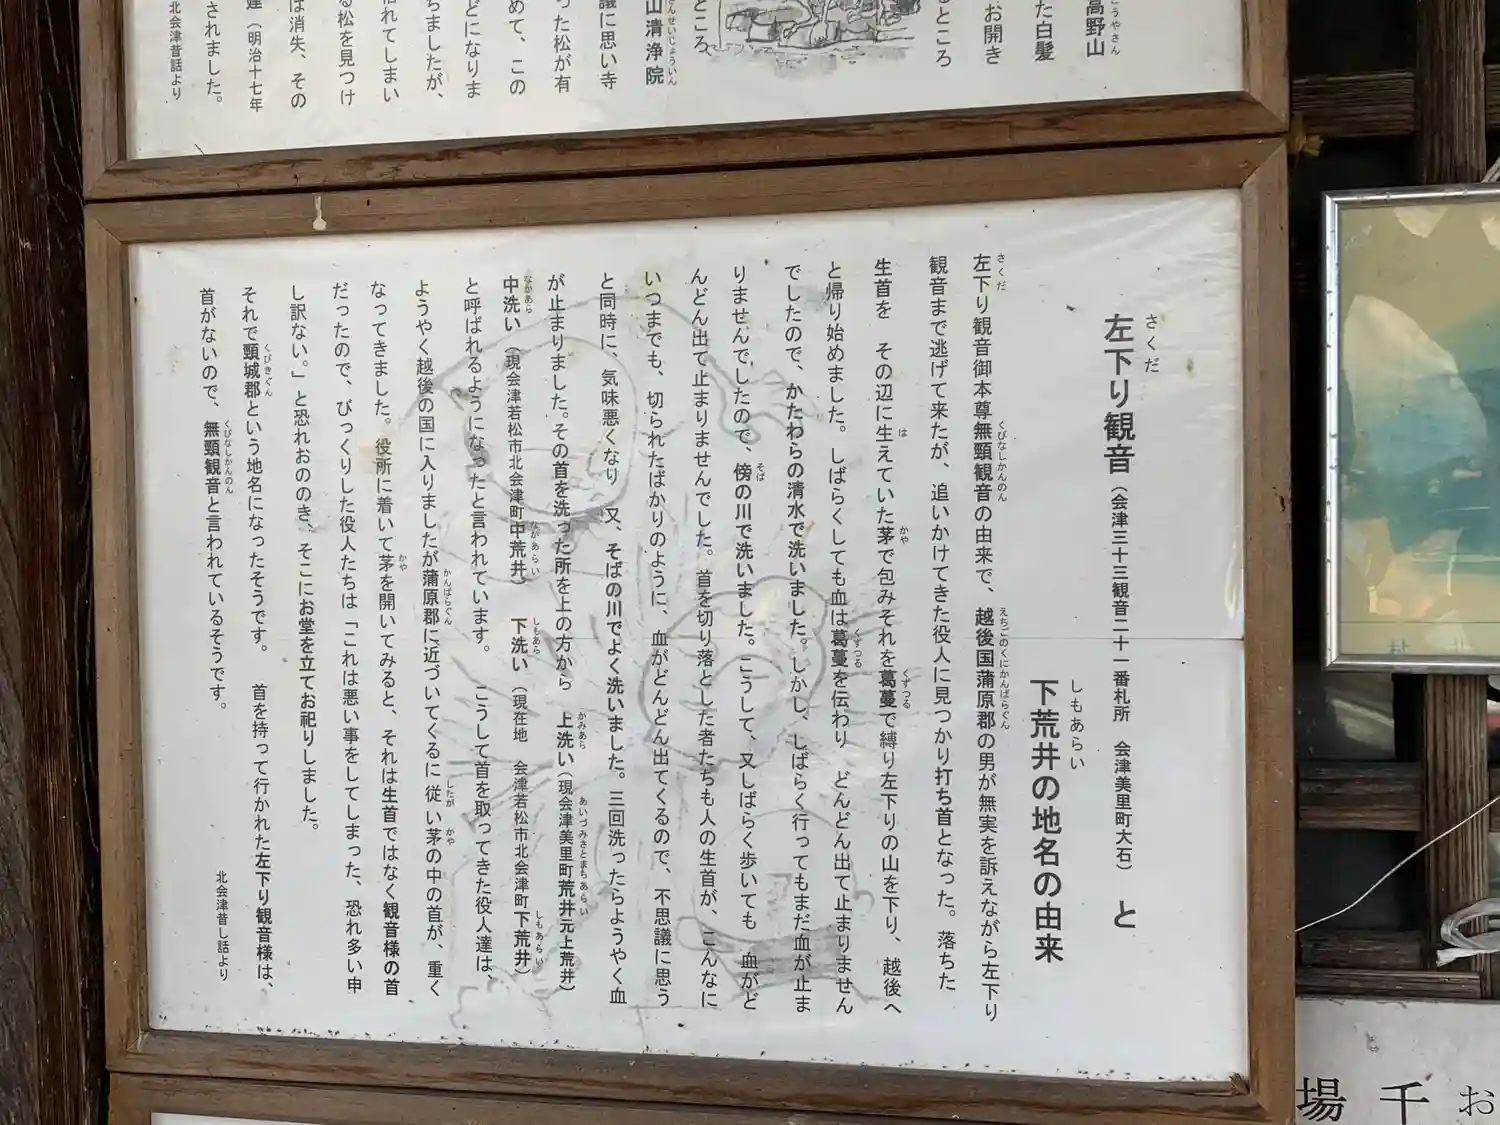 高野山
こうやさん
た白髪
お開き
るところ
ところ
山清浄院
議に思い寺
った松が有
めて、この
どになりま
ちましたが、
枯れてしまい
る松を見つけ
は消失、その
建（明治十七年
されました。
北会津昔話より
左下り観音（会津三十三観音二十一番札所　会津美里町大石）　と
さくだ
下荒井の地名の由来
しもあらい
左下り観音御本尊無頸観音の由来で、越後国蒲原郡の男が無実を訴えながら左下り
さくだ　くびなしかんのん　えちごのくにかんばらぐん
観音まで逃げて来たが、追いかけてきた役人に見つかり打ち首となった。落ちた
生首を　その辺に生えていた茅で包みそれを葛蔓で縛り左下りの山を下り、越後へ
は　かや　くずつる
と帰り始めました。しばらくしても血は葛蔓を伝わり　どんどん出て止まりません
くずつる
でしたので、かたわらの清水で洗いました。しかし、しばらく行ってもまだ血が止ま
りませんでしたので、傍の川で洗いました。こうして、又しばらく歩いても　血がど
そば
んどん出て止まりませんでした。首を切り落とした者たちも人の生首が、こんなに
いつまでも、切られたばかりのように、血がどんどん出てくるので、不思議に思う
と同時に、気味悪くなり　又、そばの川でよく洗いました。三回洗ったらようやく血
が止まりました。その首を洗った所を上の方から　上洗い（現会津美里町荒井元上荒井）
かみあら　あいづみさとまちあらい
中洗い（現会津若松市北会津町中荒井）　下洗い（現在地　会津若松市北会津町下荒井）
なかあら　なかあらい　しもあら　しもあらい
と呼ばれるようになったと言われています。　こうして首を取ってきた役人達は、
ようやく越後の国に入りましたが蒲原郡に近づいてくるに従い茅の中の首が、重く
かんばらぐん　したが　かや
なってきました。役所に着いて茅を開いてみると、それは生首ではなく観音様の首
かや
だったので、びっくりした役人たちは「これは悪い事をしてしまった、恐れ多い申
し訳ない。」と恐れおののき、そこにお堂を立てお祀りしました。
それで頸城郡という地名になったそうです。　首を持って行かれた左下り観音様は、
くびきぐん
首がないので、無頸観音と言われているそうです。
くびなしかんのん
北会津昔し話より
場　千　お